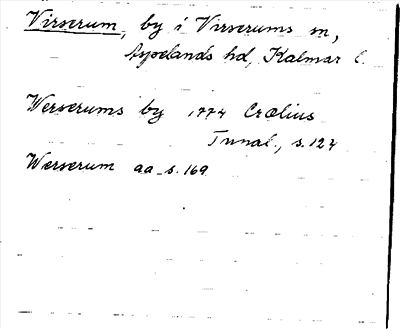 Virserum, by i Virserums sn,
Aspelands hd, Kalmar l.
Werserums by 1774 Crælius
Tunal., s. 124
Werserum aa s. 169